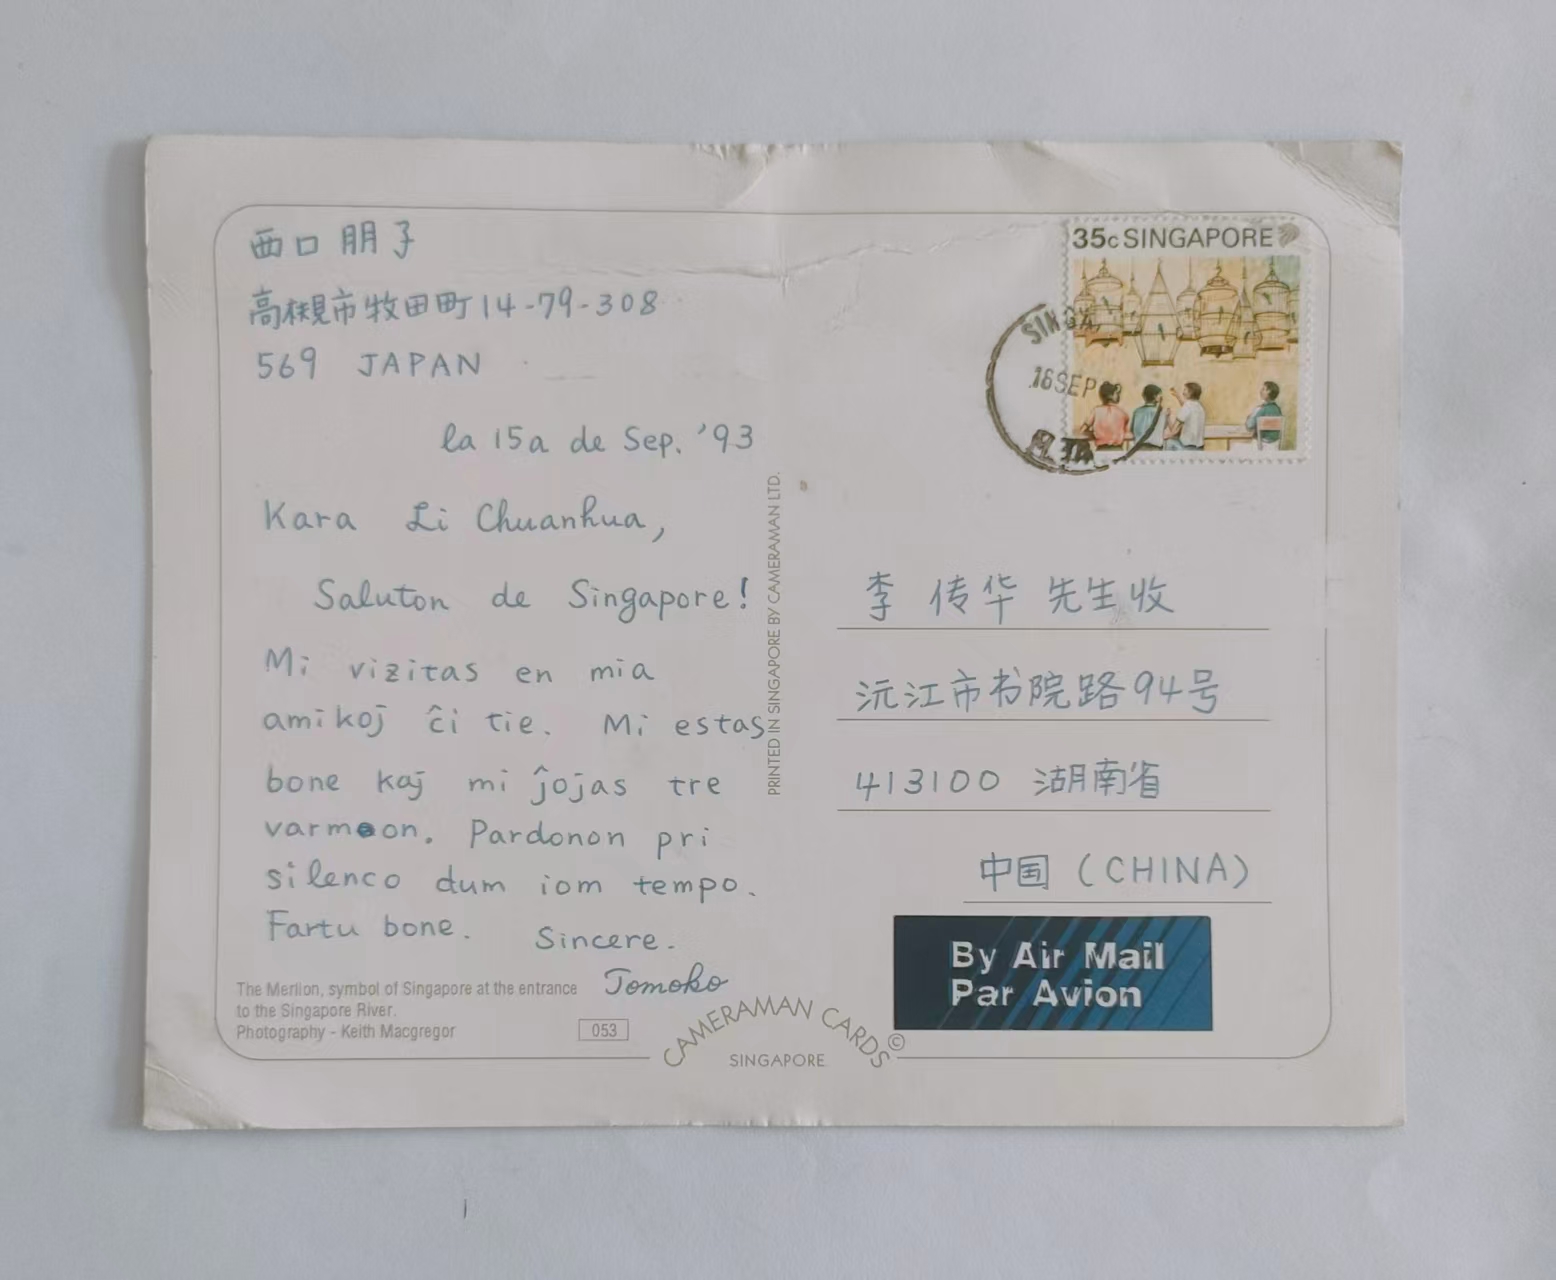 西口 朋子
高槻市牧田町14-79-308
569 JAPAN
la 15a de Sep. '93
Kara Li Chuanhua,
Saluton de Singapore!
Mi vizitas en mia
amikoj ĉi tie. Mi estas
bone kaj mi ĵojas tre
varmon. Pardonon pri
silenco dum iom tempo.
Fartu bone. Sincere.
Tomoko
The Merlion, symbol of Singapore at the entrance
to the Singapore River.
Photography - Keith Macgregor
053
PRINTED IN SINGAPORE BY CAMERAMAN LTD.
CAMERAMAN CARDS ©
SINGAPORE
35c SINGAPORE
SINGA
16 SEP
李 传华 先生收
沅江市书院路94号
413100 湖南省
中国 (CHINA)
By Air Mail
Par Avion